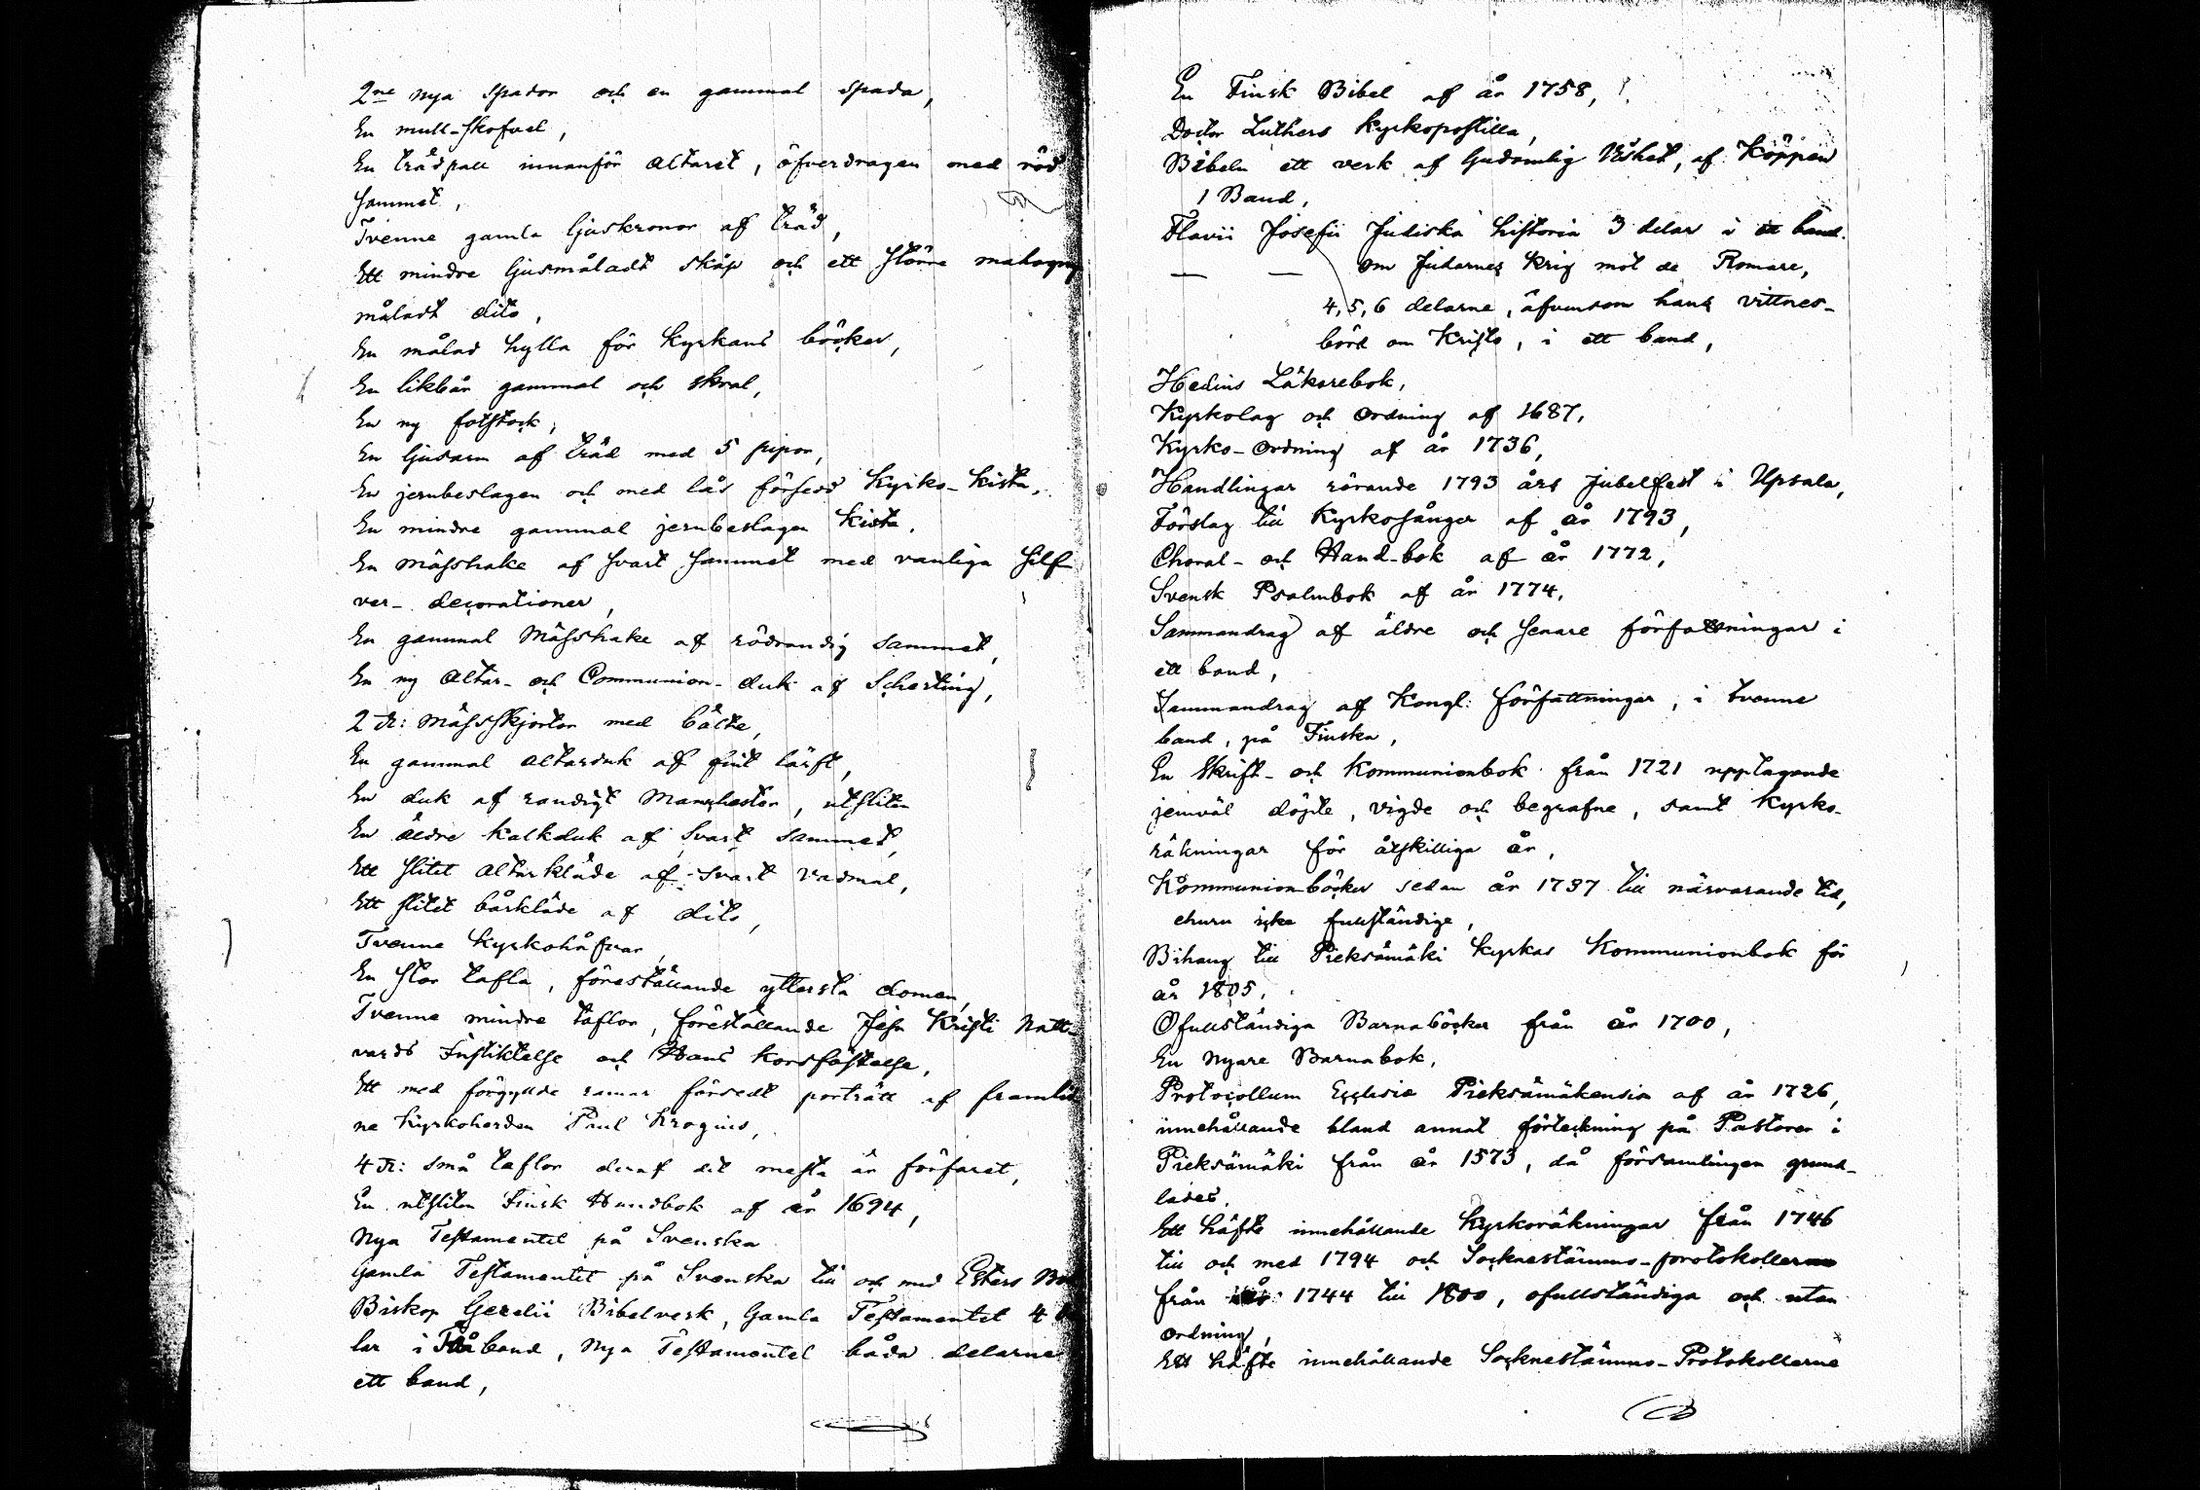 2ne nya spador och en gammal spada,
En mull-skofvel,
En trädpall innanför altaret, öfverdragen med röd
sammet,
Tvenne gamla ljuskronor af träd,
Ett mindre ljusmåladt skåp och ett större mahogny
måladt dito,
En målad hylla för Kyrkans böcker,
En likbår gammal och skral,
En ny fotstock,
En ljusarm af träd med 5 pipor,
En jernbeslagen och med lås försedd Kyrko-Kista,
En mindre gammal jernbeslagen Kista,
En mässhake af svart sammet med vanliga silf
ver-decorationer,
En gammal Mässhake af rödrandig sammet,
En ny Altar- och Communion-duk af Scherting,
2 st: Mässskjortor med bälte,
En gammal altarduk af fint lärft,
En duk af randigt Manchester, utsliten
En äldre kalkduk af svart sammet,
Ett slitet altarkläde af svart vadmal,
Ett slitet bårkläde af dito,
Tvenne Kyrkohåfvar,
En stor tafla, föreställande yttersta domen,
Tvenne mindre taflor, föreställande Jesu Kristi Natt-
vards Instiktelse och Hans Korsfästelse,
Ett med förgyllde ramar försedt porträtt af framlid
ne Kyrkoherden Paul Krogius,
4 st: små taflor deraf det mesta är förfaret,
En utsliten Finsk Handbok af år 1694,
Nya Testamentet på Svenska
Gamla Testamentet på Svenska till och med Esters Bok
Biskop Gezelii Bibelverk, Gamla Testamentet 4
lar i band, Nya Testamentet båda delarne
ett band,
En Finsk Bibel af år 1758,
Doctor Luthers Kyrkopostilla,
Bibeln ett verk af Gudomlig Vishet, af Köppen
1 Band,
Flavii Josefii Judiska historia 3 delar i ett band.
— — om Judarnes Krig mot de Romare,
4, 5, 6 delarne, äfvensom hans vittnes-
börd om Kristo, i ett band,
Hedins Läkarebok,
Kyrkolag och ordning af 1687,
Kyrko-ordning af år 1736,
Handlingar rörande 1793 års Jubelfest i Upsala,
Förslag till Kyrkosånger af år 1793,
Choral- och Hand-bok af år 1772,
Svensk Psalmbok af år 1774,
Sammandrag af äldre och senare författningar i
ett band,
Sammandrag af Kongl: författningar, i tvenne
band, på Finska,
En Skrift- och Kommunionbok från 1721 upptagande
jemväl döpte, vigde och begrafne, samt Kyrko-
räkningar för åtskilliga år,
Kommunionböcker sedan år 1737 till närvarande tid,
ehuru icke fullständige,
Bihang till Pieksämäki Kyrkas Kommunionbok för
år 1805,
Ofullständiga Barnaböcker från år 1700,
En nyare Barnabok,
Protocollum Ecclesiæ Pieksämäkensis af år 1726,
innehållande bland annat förteckning på Pastorer i
Pieksämäki från år 1573, då församlingen grund-
lades,
Ett häfte innehållande Kyrkoräkningar från 1746
till och med 1794 och Socknestämmo-protokollerne
från 1744 till 1800, ofullständiga och utan
ordning,
Ett häfte innehållande Socknestämmo-Protokollerne